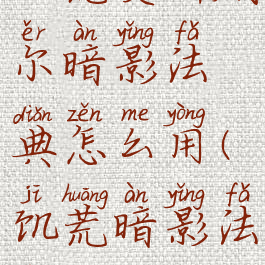 ěr àn yǐng fǎ
尔暗影法
diǎn zěn me yòng
典怎么用(
jī huāng àn yǐng fǎ
饥荒暗影法